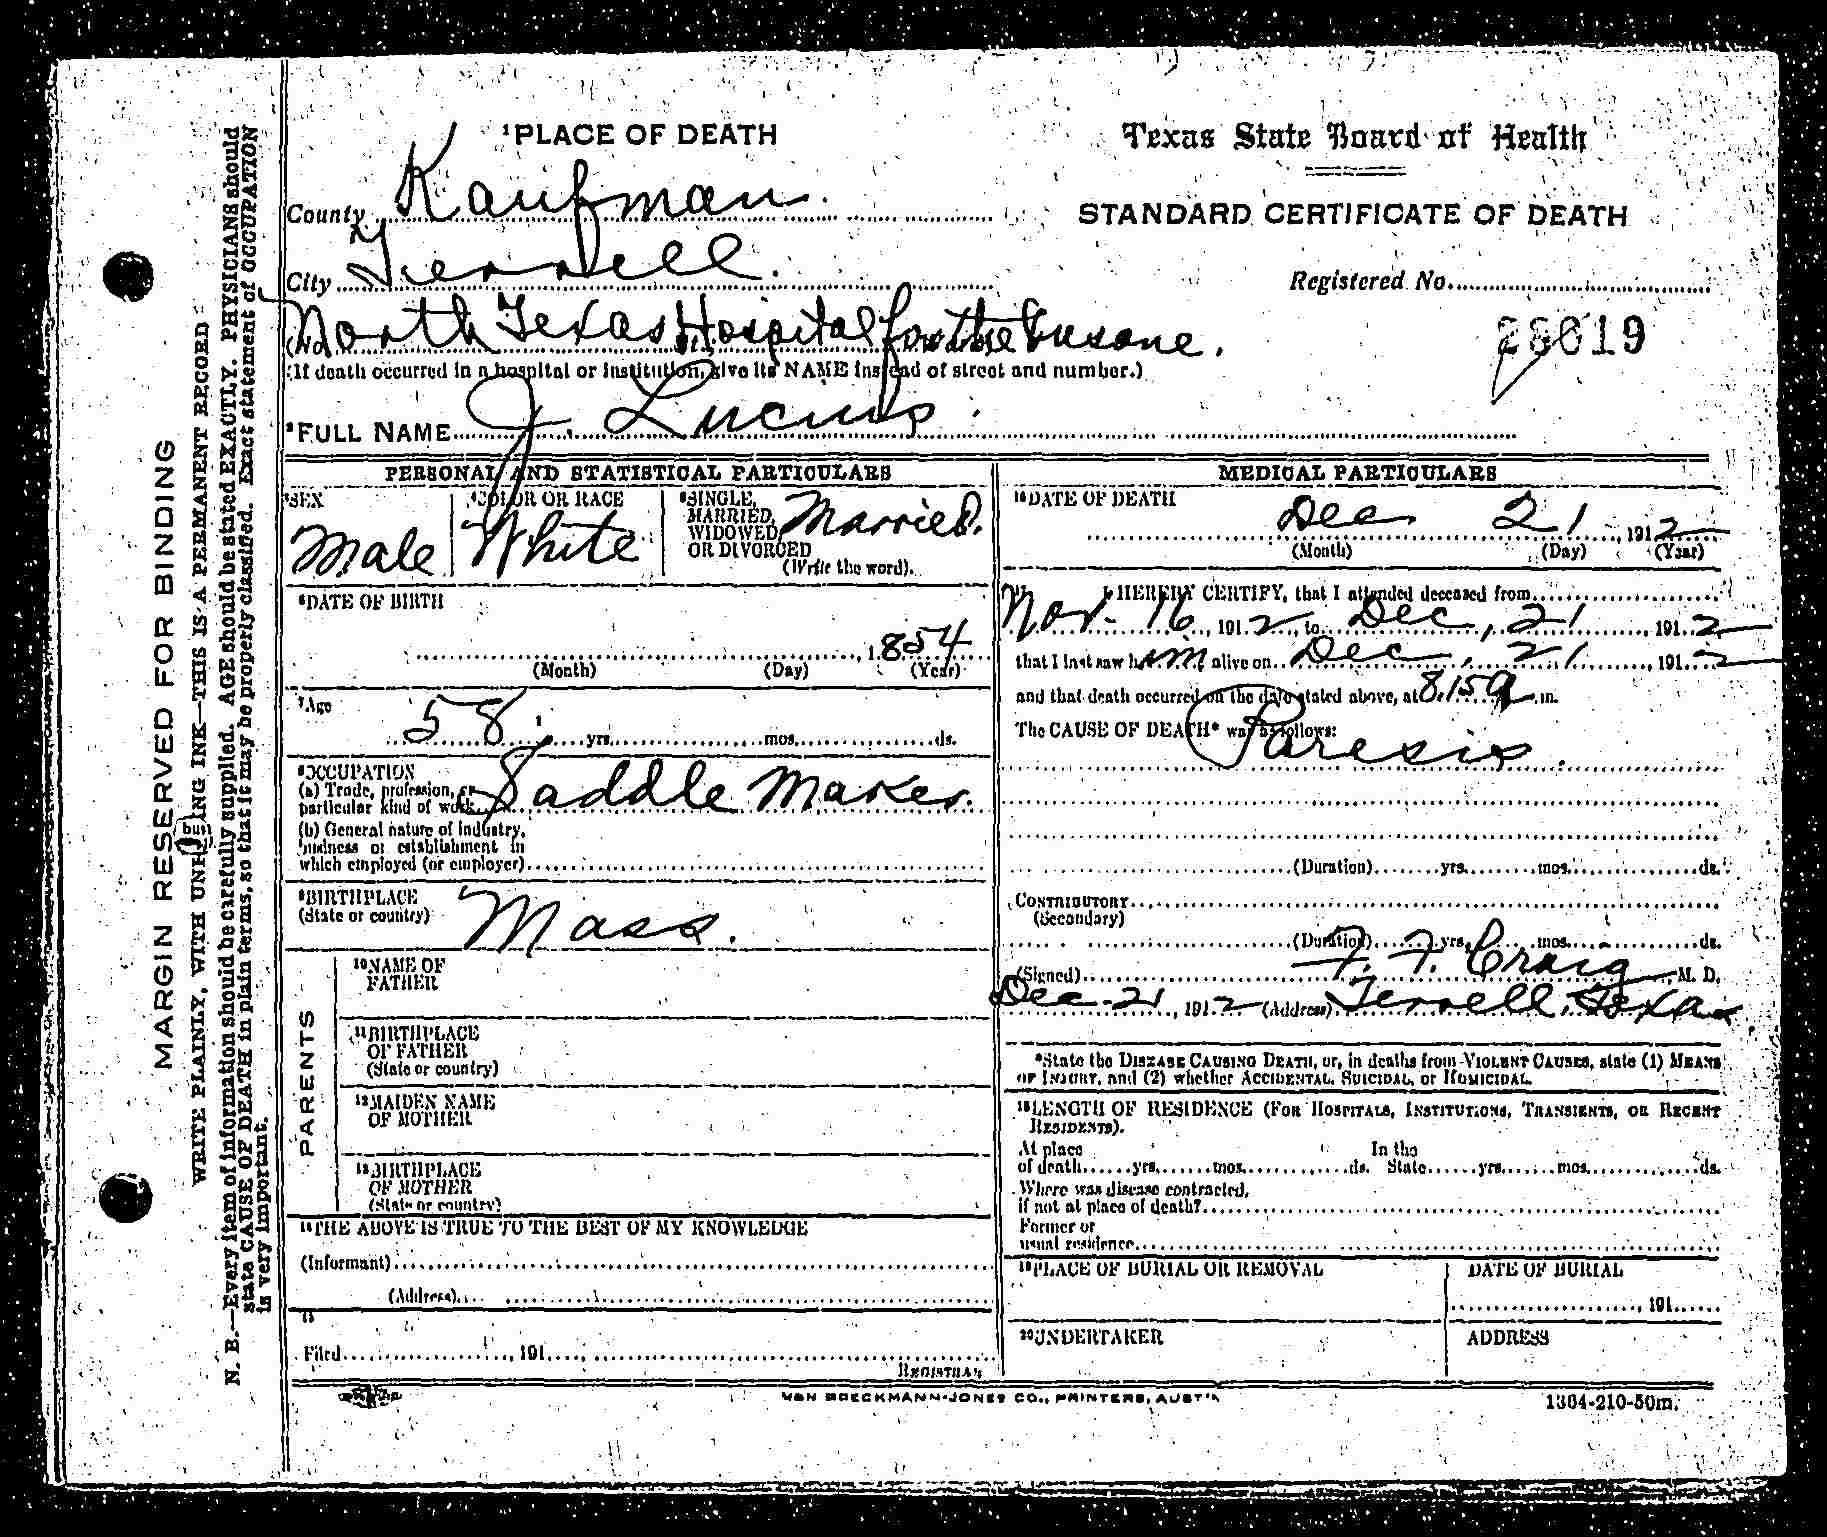 MARGIN RESERVED FOR BINDING
WRITE PLAINLY, WITH UNFADING INK—THIS IS A PERMANENT RECORD
N. B.—Every item of information should be carefully supplied. AGE should be stated EXACTLY. PHYSICIANS should
state CAUSE OF DEATH in plain terms, so that it may be properly classified. Exact statement of OCCUPATION
is very important.
1 PLACE OF DEATH
County Kaufman
City Terrell.
(No North Texas Hospital for the Insane.
(If death occurred in a hospital or institution, give its NAME instead of street and number.)
Texas State Board of Health
STANDARD CERTIFICATE OF DEATH
Registered No.
2 FULL NAME J. Lucius
PERSONAL AND STATISTICAL PARTICULARS
3 SEX Male
4 COLOR OR RACE White
5 SINGLE, MARRIED, WIDOWED, OR DIVORCED (Write the word). Married.
6 DATE OF BIRTH
1854
(Month) (Day) (Year)
7 Age
58 yrs. mos. ds.
8 OCCUPATION
(a) Trade, profession, or
particular kind of work Saddle Maker.
(b) General nature of industry,
business or establishment in
which employed (or employer)
9 BIRTHPLACE
(State or country) Mass.
PARENTS
10 NAME OF
FATHER
11 BIRTHPLACE
OF FATHER
(State or country)
12 MAIDEN NAME
OF MOTHER
13 BIRTHPLACE
OF MOTHER
(State or country)
14 THE ABOVE IS TRUE TO THE BEST OF MY KNOWLEDGE
(Informant)
(Address)
15
Filed 191
REGISTRAR
MEDICAL PARTICULARS
16 DATE OF DEATH
Dec 21, 1912
(Month) (Day) (Year)
17 I HEREBY CERTIFY, that I attended deceased from
Nov. 16, 1912, to Dec, 21, 1912
that I last saw him alive on Dec, 21, 1912
and that death occurred on the date stated above, at 8.15 a m.
The CAUSE OF DEATH* was as follows:
Paresis.
(Duration) yrs. mos. ds.
CONTRIBUTORY
(Secondary)
(Duration) yrs. mos. ds.
(Signed) F. F. Craig, M. D.
Dec-21, 1912 (Address) Terrell, Texas.
*State the DISEASE CAUSING DEATH, or, in deaths from VIOLENT CAUSES, state (1) MEANS
OF INJURY, and (2) whether ACCIDENTAL, SUICIDAL, or HOMICIDAL.
18 LENGTH OF RESIDENCE (FOR HOSPITALS, INSTITUTIONS, TRANSIENTS, OR RECENT
RESIDENTS).
At place In the
of death yrs. mos. ds. State yrs. mos. ds.
Where was disease contracted,
if not at place of death?
Former or
usual residence
19 PLACE OF BURIAL OR REMOVAL
DATE OF BURIAL
191
20 UNDERTAKER
ADDRESS
VON BOECKMANN-JONES CO., PRINTERS, AUSTIN
1304-210-50m.